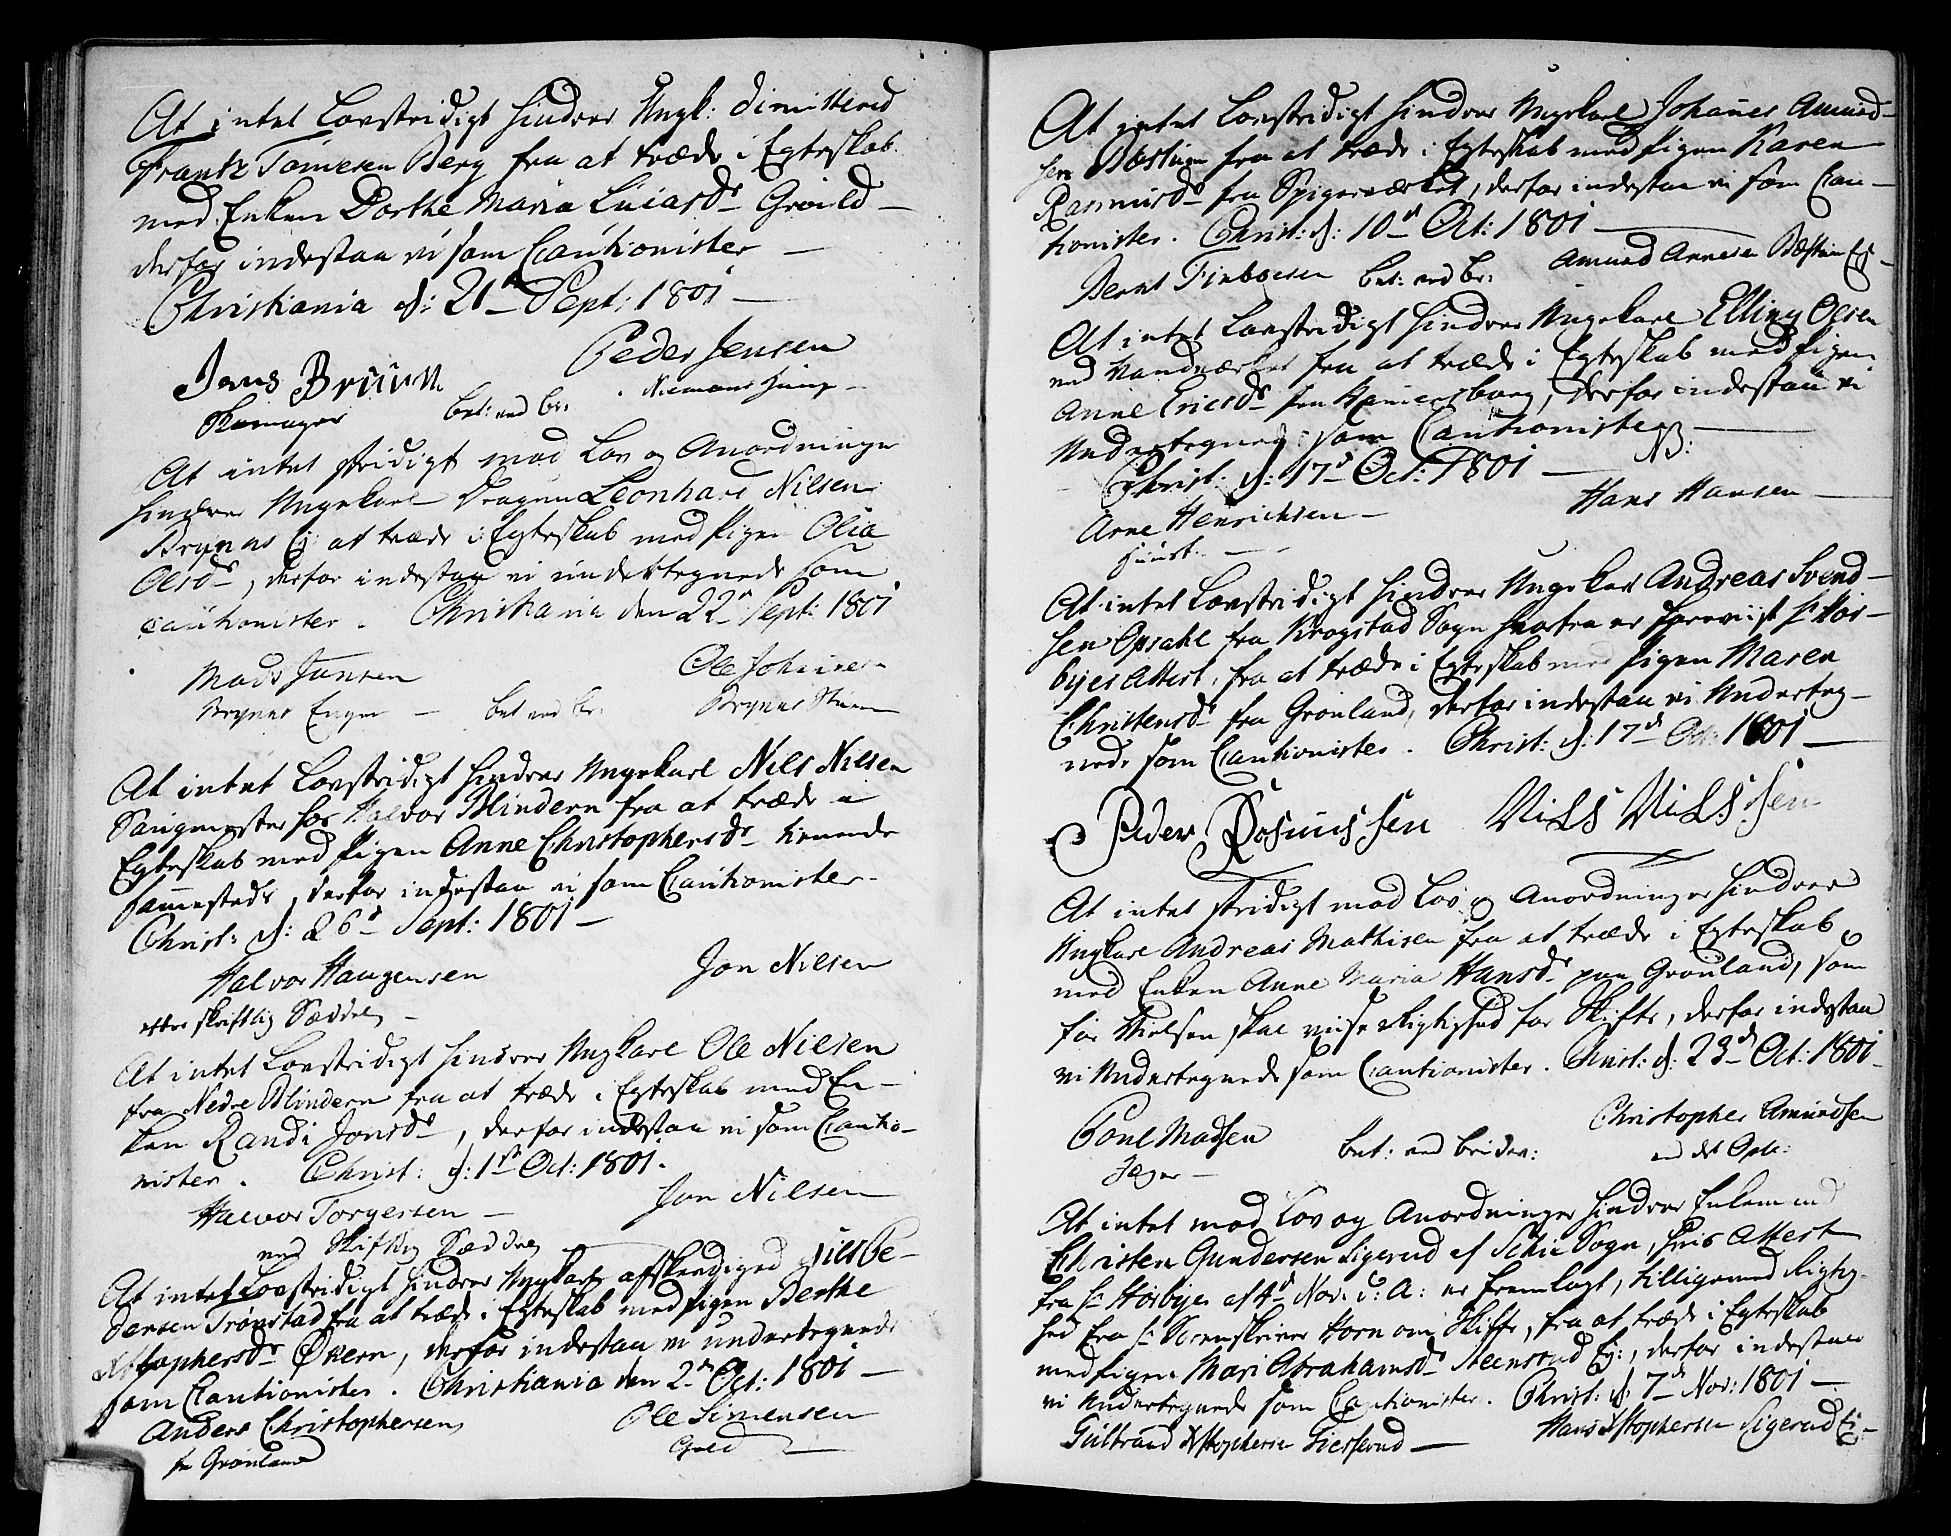 At intet Lovstridigt hindrer Ungk: dimitterd
Frantz Tømesen Berg fra at træde i Egteskab
med Enken Dorthe Maria Luiasdr
derfor indestaa vi som Cautionister
Christiania d: 21 Sept: 1801
Jens Bruun
Peder Jensen
Skomager
bet: ved br:
At intet stridigt mod Lov og Anordninger
hindrer Ungekarl Dragun Leonhard Nilsen
Brynns Ej: at træde i Egteskab med Pigen Olia
Olsdr, derfor indestaa vi undertegnede som
Cautionister. Christiania den 22 Sept: 1801
Mads Jansen
Ole Johnsen
Brynns Enger
bet ved br:
Brynns
At intet Lovstridigt hindrer Ungekarl Nils Nilsen
Saugmester hos Halvor Blindern fra at træde i
Egteskab med Pigen Anne Christophersdr tienende
sammesteds, derfor indestaa vi som Cautionister.
Christ: d: 26 Sept: 1801
Halvor Haugensen
Jon Nilsen
efter skriftlig Seddel
At intet Lovstridigt hindrer Ungkarl Ole Nilsen
fra Nedre Blindern fra at træde i Egteskab med En-
ken Randi Jonsdr, derfor indestaa vi som Cautio-
nister. Christ: d: 1st Oct: 1801.
Halvor Torgersen
Jon Nilsen
ved Skriftlig Seddel
At intet Lovstridigt hindrer Ungkarl afskediged
densen Trønstad fra at træde i Egteskab med pigen Berthe
Xstophersdr Økern, derfor indestaa vi undertegnede
som Cautionister. Christiania den 2 Oct: 1801
Anders Christophersen
Ole Simensen
fr Grønland
At intet Lovstridigt hindrer Ungekarl Johanes Amund-
sen Bæstuen fra at træde i Egteskab med Pigen Karen
Rasmusdr fra Spigerværket, derfor indestaa vi som Cau-
tionister. Christ: d: 10 Oct: 1801
Bernt Finboesen
bet: ved br:
Amund Annesen
At intet Lovstridigt hindrer Ungekarl Elling Olsen
ved Vandværket fra at træde i Egteskab med Pigen
Anne Ericsdr fra, derfor indestaa vi
Undertegnede som Cautionister
NB:
Christ: d: 17 Oct: 1801
Arne Henrichsen
Hans Hansen
At intet Lovstridigt hindrer Ungekarl Andreas Svend-
sen Opsahl fra Krogstad Sogn hvorfra er foreviist Hr Hør-
byes Attest, fra at træde i Egteskab med Pigen Maren
Christensdr fra Grønland, derfor indestaa vi Underteg-
nede som Cautionister. Christ: d: 17 Oct: 1801
Peder Rosmussen
Nils Nilssen
At intet stridigt mod Lov og Anordninger hindrer
Ungkarl Andreas Mathisen fra at træde i Egteskab
med Enken Anne Maria Hansdr paa Grønland, som
før Vielsen skal viise Rigtighed for Skifte, derfor indestaa
vi Undertegnede som Cautionister. Christ: d: 23 Oct: 1801
Poul Madsen
Christopher Amundsen
Jæger
bet: ved brider:
ved det Opl:
At intet mod Lov og Anordninger hindrer Enkemand
Christen Gundersen Sigerud af Schie Sogn, hvis Attest
fra Hr Hørbye af 4 Nov: d: A: er fremlagt, tilligemed Rigtig-
hed fra Hr Sorenskriver Horn om Skifte, fra at træde i Egteskab
med pigen Mari Abrahamsdr Steensrud Ej:, derfor indestaae
vi Undertegnede som Cautionister. Christ: d: 7 Nov: 1801
Gulbrand Xstophersen
Hans Xstophersen Sigerud Ei: